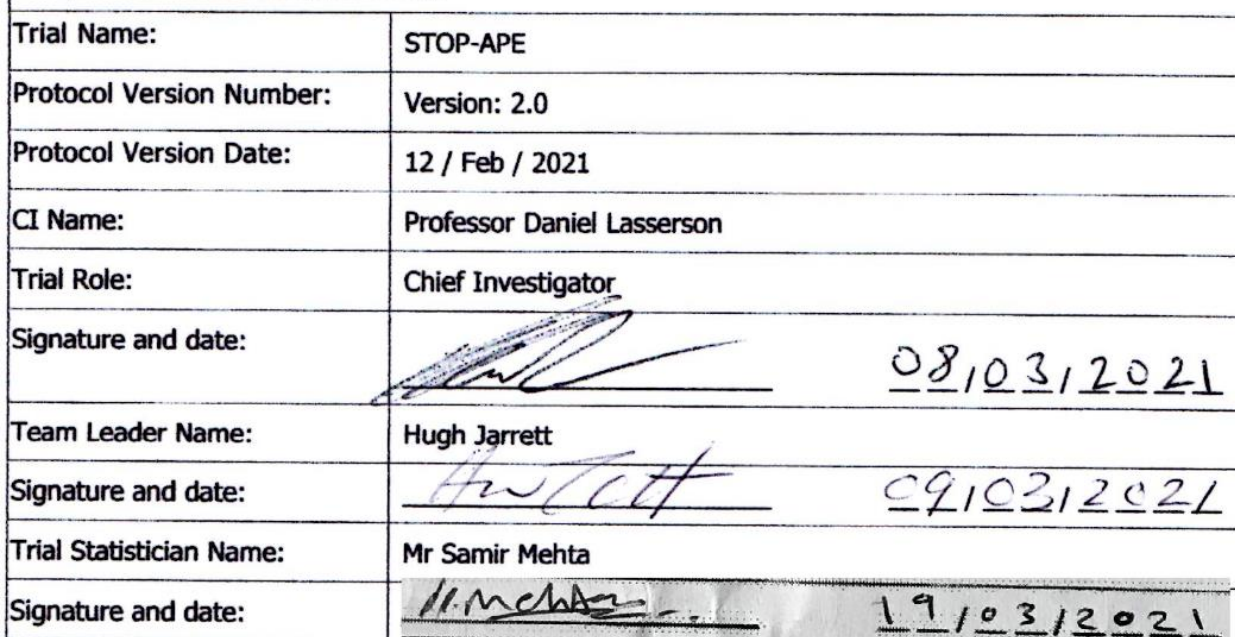 Trial Name: STOP-APE
Protocol Version Number: Version: 2.0
Protocol Version Date: 12 / Feb / 2021
CI Name: Professor Daniel Lasserson
Trial Role: Chief Investigator
Signature and date: 08/03/2021
Team Leader Name: Hugh Jarrett
Signature and date: 09/03/2021
Trial Statistician Name: Mr Samir Mehta
Signature and date: 19/03/2021